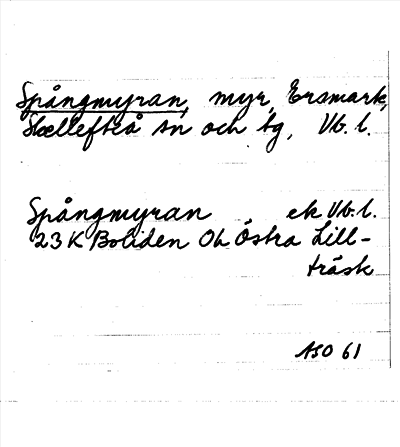 Spångmyran, myr, Ersmark,
Skellefteå sn och tg, Vb. l.
Spångmyran ek Vb. l.
23 K Boliden Ob Östra Lill-
träsk
ASO 61